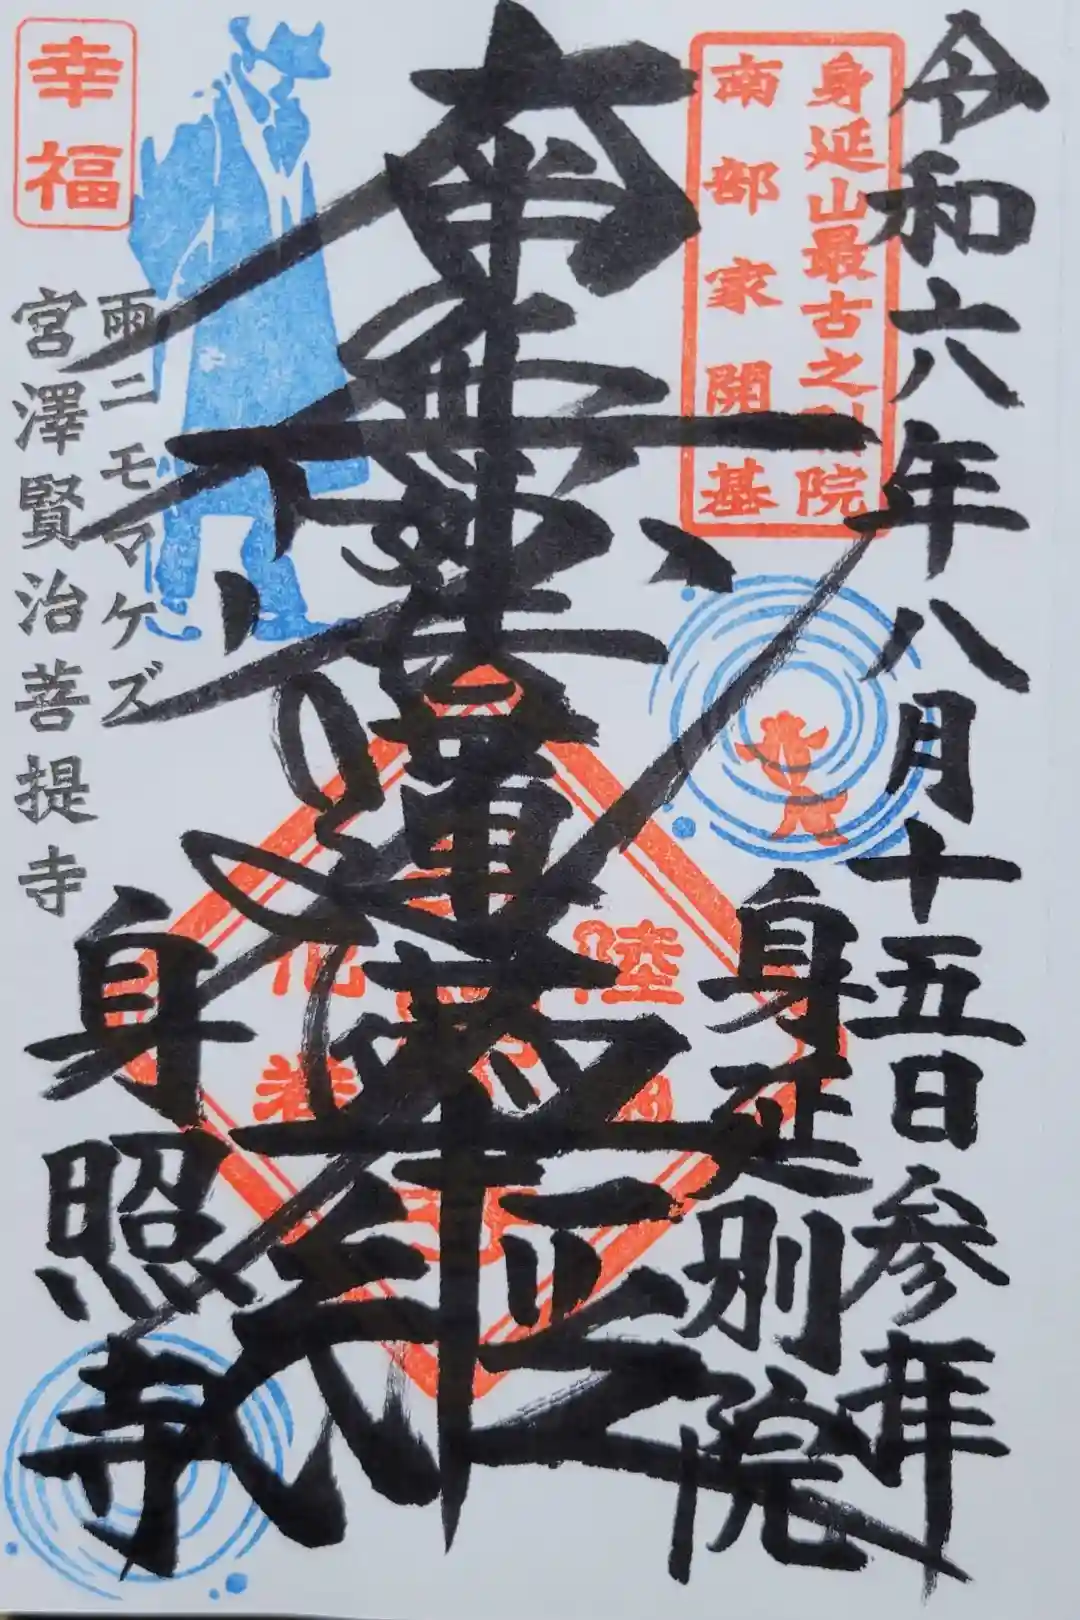 令和六年八月十五日参拝
身延山最古之別院
南部家開基
身延別院
南無妙法蓮華経
陸
花巻
幸福
雨ニモマケズ
宮澤賢治菩提寺
身照寺